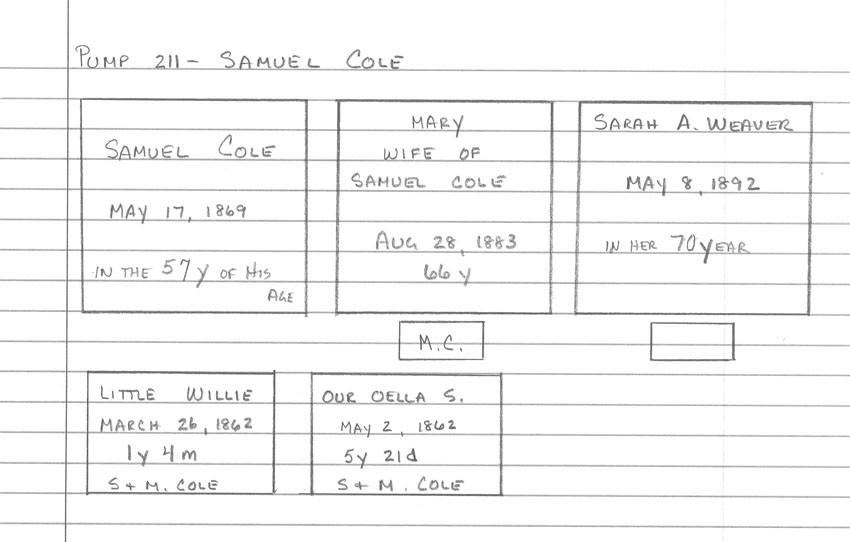 PUMP 211 - SAMUEL COLE
SAMUEL COLE
MAY 17, 1869
IN THE 57 y OF HIS
AGE
MARY
WIFE OF
SAMUEL COLE
AUG 28, 1883
66 y
SARAH A. WEAVER
MAY 8, 1892
IN HER 70 YEAR
M.C.
LITTLE WILLIE
MARCH 26, 1862
1y 4m
S + M. COLE
OUR OELLA S.
MAY 2, 1862
5y 21d
S + M. COLE